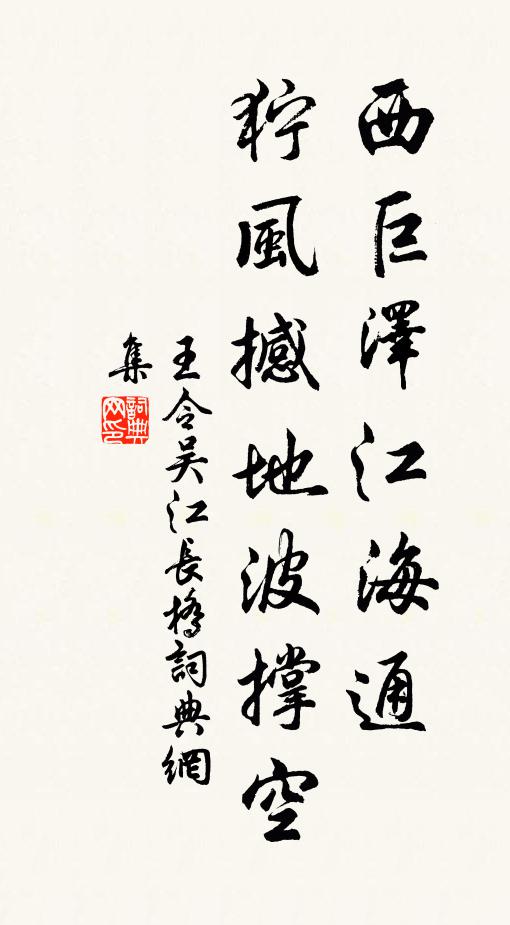 西巨澤江海通
狞風撼地波撑空
王令吴江長橋詞典網
集
詞典
网印